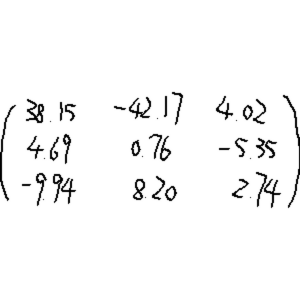 38.15 -42.17 4.02
4.69 0.76 -5.35
-9.94 8.20 2.74